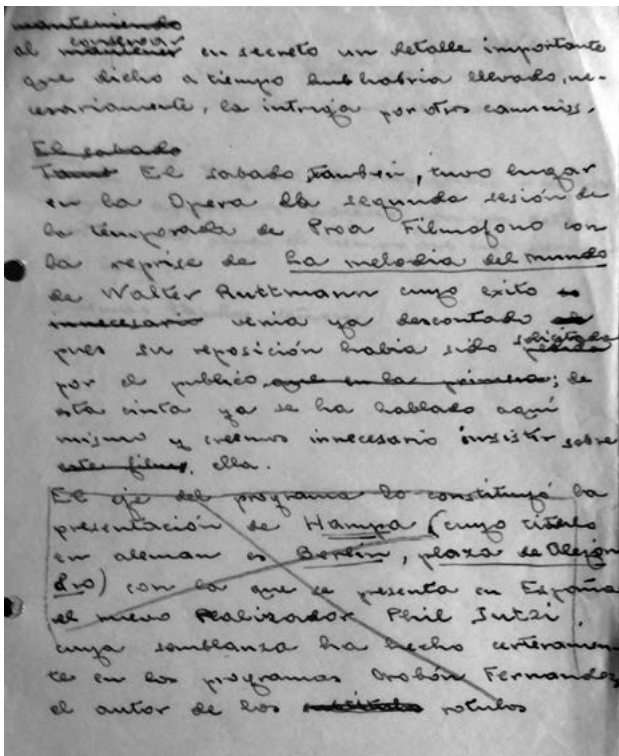 manteniendo
al mantener conservar en secreto un detalle importante
que dicho a tiempo hubhabria llevado, ne-
cesariamente, la intriga por otros caminos.
El sabado
Tamb El sabado, tambien, tuvo lugar
en la Opera la segunda sesión de
la temporada de Proa Filmofono con
la reprise de La melodia del mundo
de Walter Ruttmann cuyo exito es
innecesario venia ya descontado
pues su reposición habia sido pedida solicitada
por el publico que en la primera; de
esta cinta ya se ha hablado aqui
mismo y creemos innecesario insistir sobre
este films, ella.
El eje del programa lo constituyó la
presentación de Hampa (cuyo titulo
en aleman es Berlin, plaza de Alejan
dro) con la que se presenta en España
el nuevo Realizador Phil Jutzi,
cuya semblanza ha hecho certeramen-
te en los programas Orobón Fernandez
el autor de los rotulos